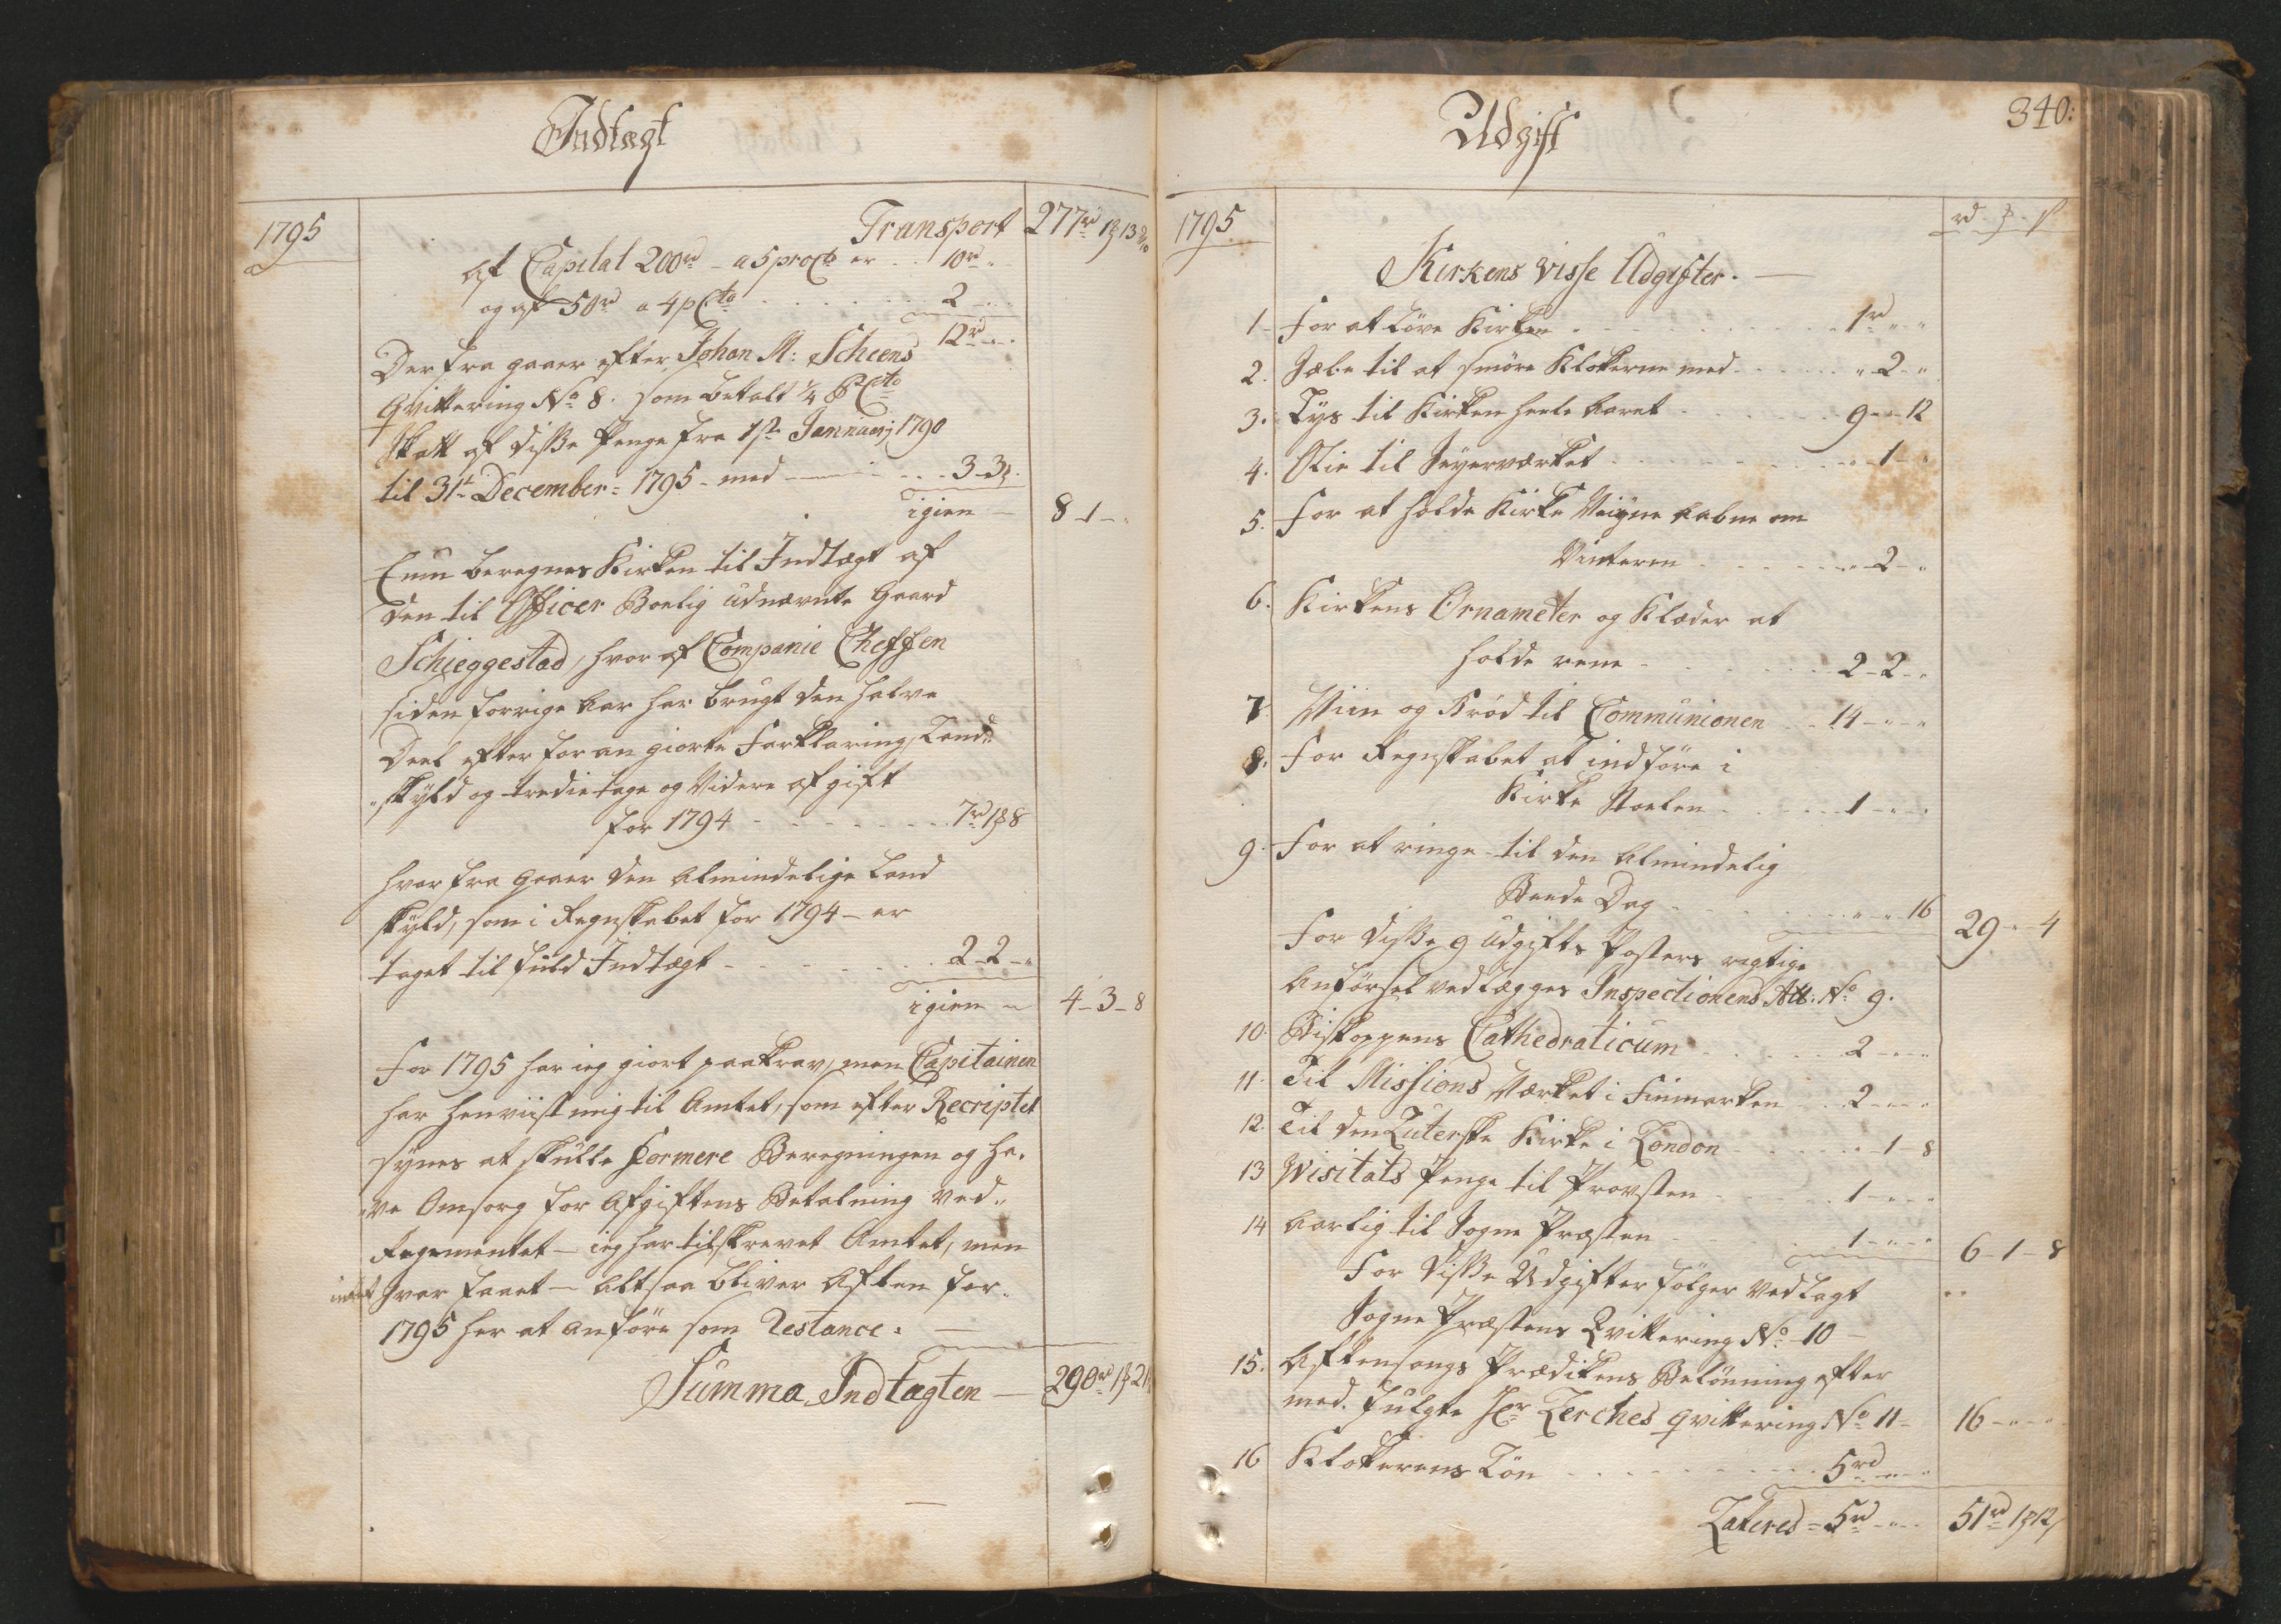 Indtægt
1795
Transport 277rd 1 13
Af Capital 200rd - a 5 procto er .. 10rd "
og af 50rd a 4 pCto ...... 2 - "
12rd - "
Der fra gaaer efter Johan M: Scheens
Qvittering No 8. som betalt 1/4 PCto
Skatt af disse Penge fra 1ste Januarj 1790
til 31te December = 1795 - med ..... 3-3
igien - 8-1-"
Enn beregnes Kirken til Indtægt af
den til Officer Boelig udnævnte Gaard
Schieggestad, hvor af Companie Cheffen
siden forrige Aar har brugt den halve
Deel efter foran giorte Forklaring, Land
skyld og tredietage og Videre afgift
for 1794 ......... 7rd 1 8
hvor fra gaaer den Almindelige Land
skyld, som i Regnskabet for 1794 - er
taget til fuld Indtægt ........ 2-2-"
igien - 4-3-8
For 1795 har ieg giort paakrav, men Capitainen
har henviist mig til Amtet, som efter Recriptet
synes at skulle formere Beregningen og ha„
„ve Omsorg for Afgiftens Betalning ved„
Regimentet - ieg har tilskrevet Amtet, men
intet Svar faaet - altsaa bliver Aften for„
1795 her at anføre som Restance: -
Summa Indtægten - 290rd 1 21
Udgift
340:
1795
rd
Kirkens visse Udgifter. -
1 - For at løve Kirken ........ 1rd " "
2. Sæbe til at smøre Klokkerne med ...... " 2 - "
3. Lys til Kirken heele Aaret ...... 9 - " 12
4. Olie til Seyerværket ........ " - 1 - "
5. For at holde Kirke Veiyne aabne om
Vinteren ....... " - 2 - "
6. Kirkens Ornameter og Klæder at
holde rene ....... 2-2-"
7. Viin og Brød til Communionen .. 14 - " - "
8. For Regnskabet at indføre i
Kirke Stoelen ...... 1 - " - "
9. For at ringe til den Almindelig
Beede Dag ........ " - " 16
29 - " - 4
For disse 9 Udgifts Posters rigtige
Anførsel vedlægges Inspectionens Att: No 9.
10. Biskoppens Cathedraticum ...... 2 - " - "
11. Til Missions Værket i Finmarken .... 2 - " - "
12. Til den Luterske Kirke i London ...... " - 1 - 8
13 Visitats Penge til Provsten ...... 1 - " - "
14 Aarlig til Sogne Præsten ...... 1 - " - "
6-1-8
For disse Udgifter følger vedlagt
Sogne Præstens Qvittering No 10 -
15. Aftensangs Prædikens Belønning efter
med fulgte Hr Lerches qvittering No 11 - 16 - " - "
16 Klokkerens Løn ......... 5rd " - "
Lateres = 5rd - " - 51rd 1 12